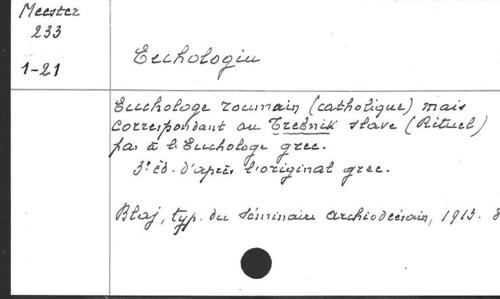 Meester
233
1-21
Euchologiu
Euchologe roumain (catholique) mais
correspondant au Trebnik slave (Rituel)
pas à l'Euchologe grec.
3e éd. d'après l'original grec.
Blaj, typ. du Séminaire archidiocésain, 1913. 8